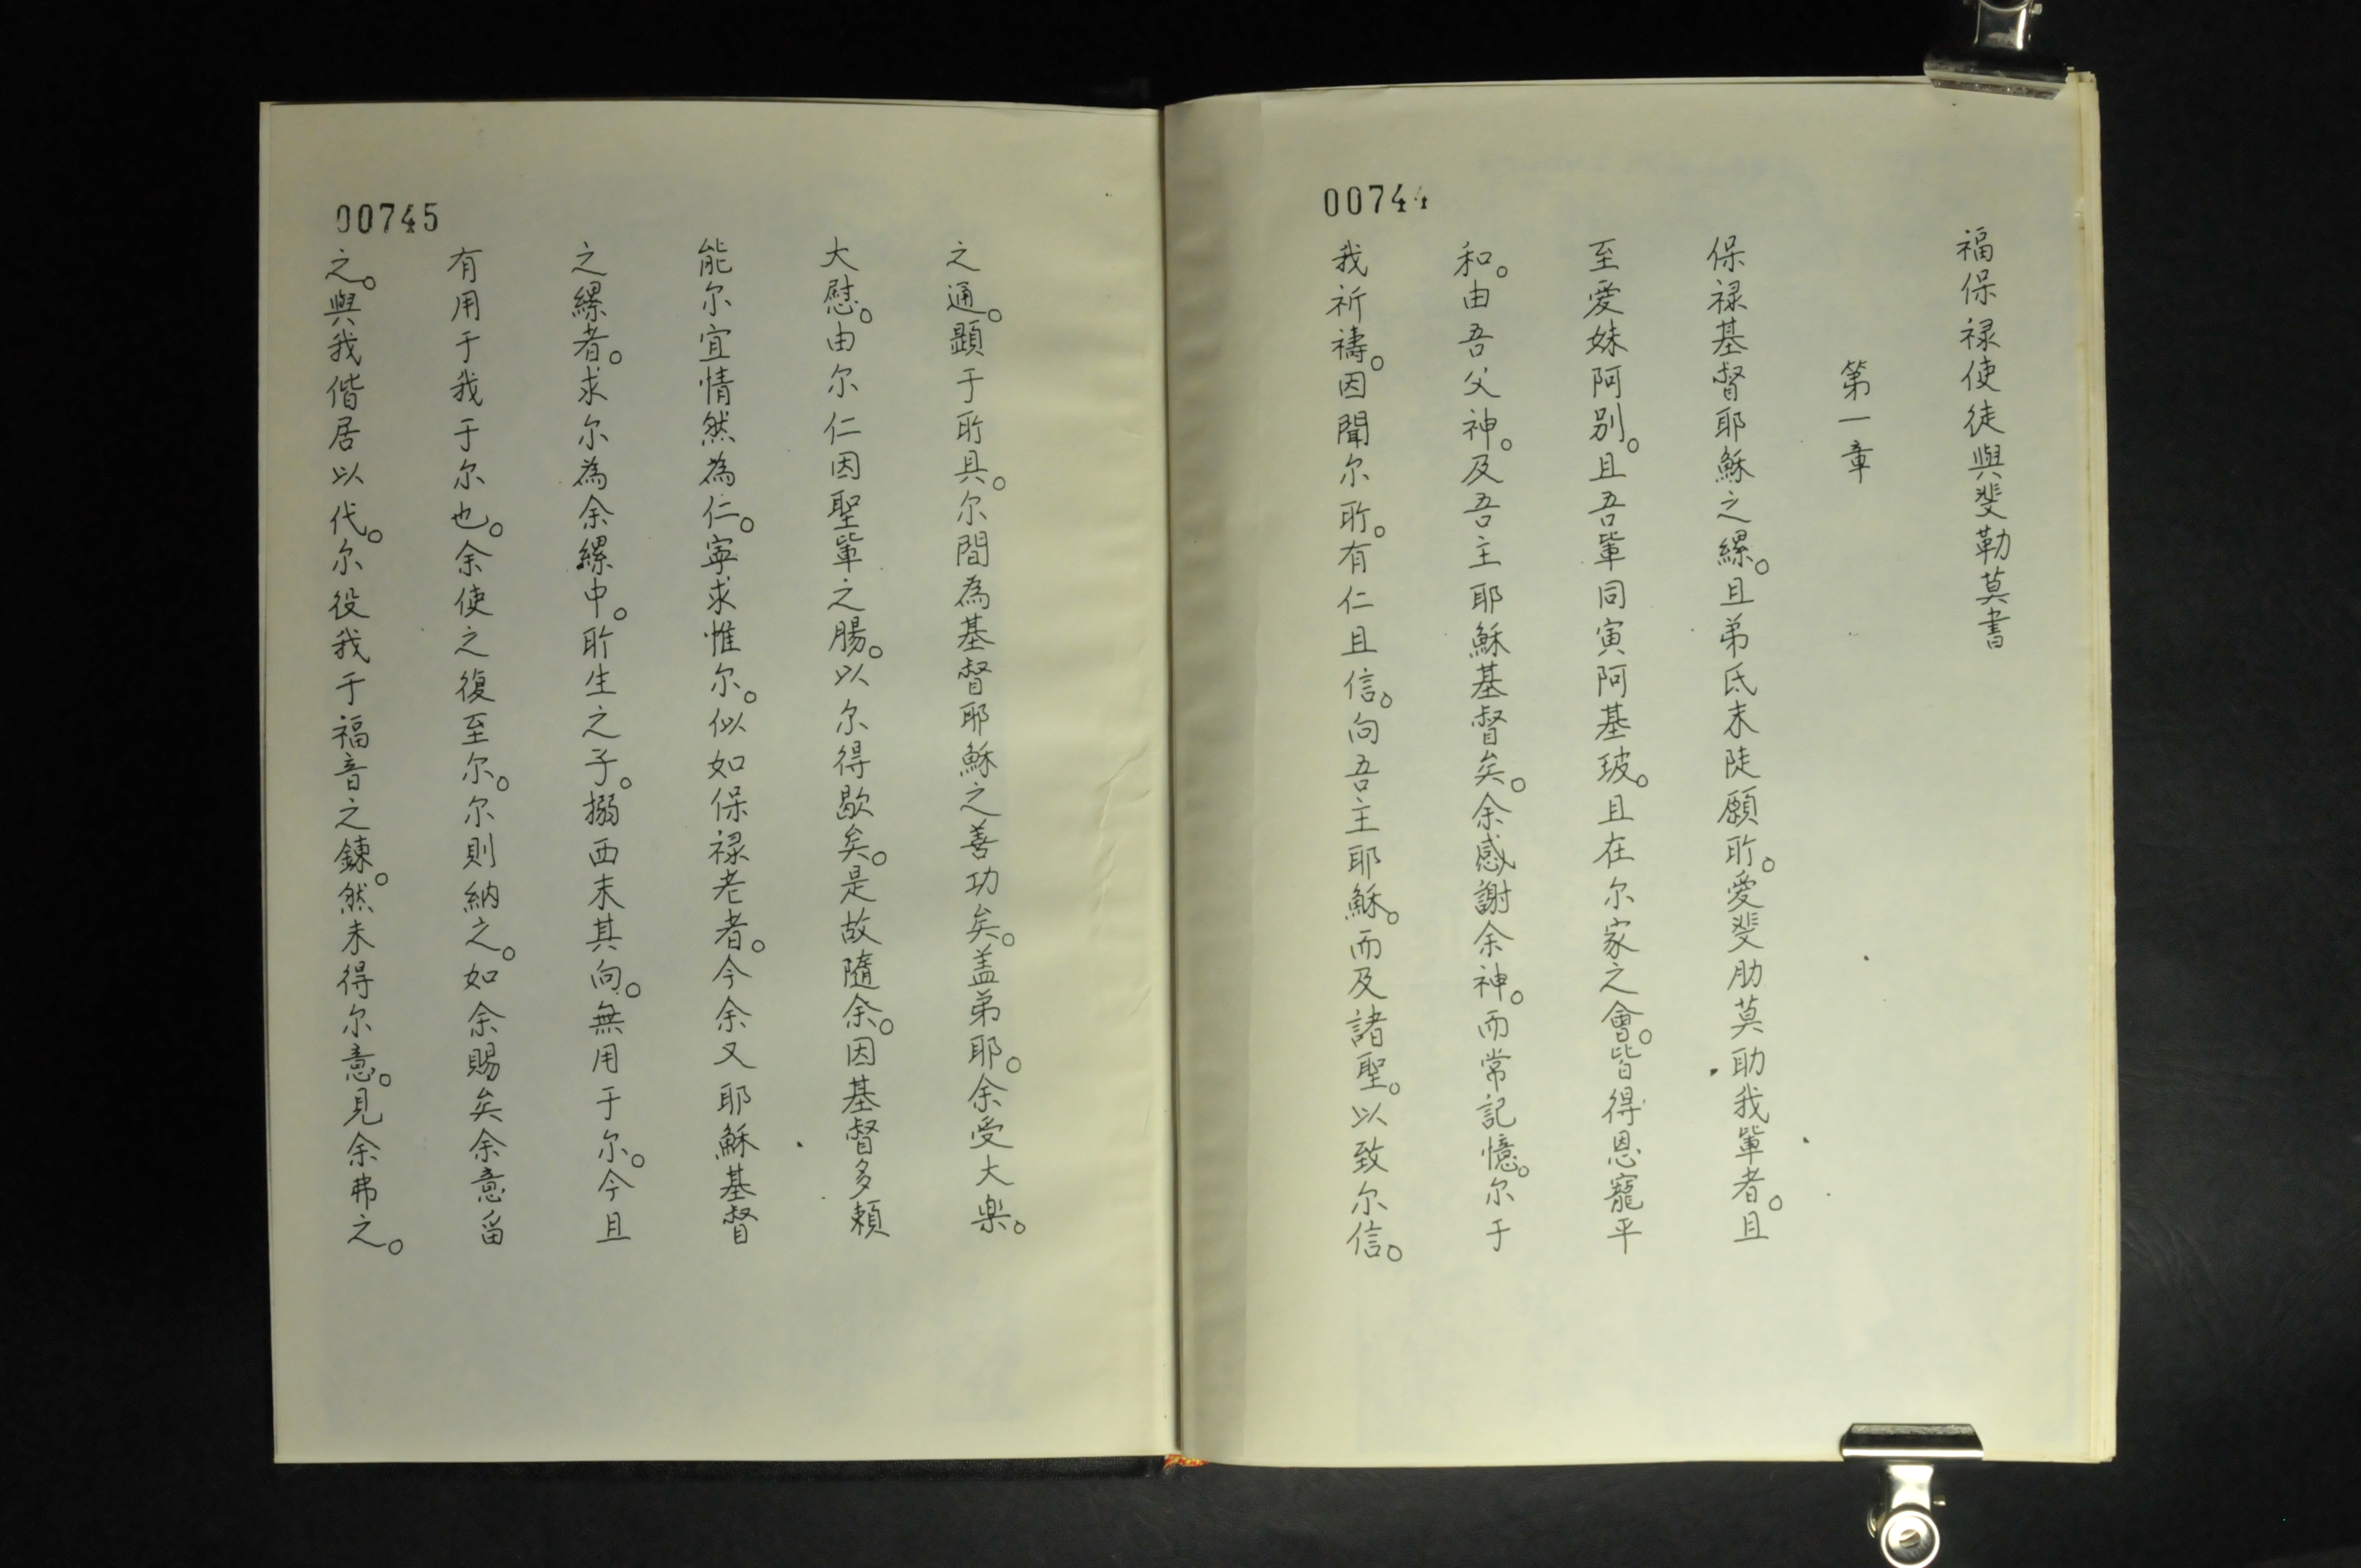 00744
福保禄使徒與斐勒莫書
第一章
保禄基督耶穌之縲。且弟氐末陡願所。愛斐肋莫助我軰者。且
至愛妹阿别。且吾軰同寅阿基玻。且在尔家之會。皆得恩寵平
和。由吾父神。及吾主耶穌基督矣。余感謝余神。而常記憶。尔于
我祈禱。因聞尔所。有仁且信。向吾主耶穌。而及諸聖。以致尔信。
00745
之通。顕于所具。尔間為基督耶穌之善功矣。盖弟耶。余受大樂。
大慰。由尔仁因聖軰之腸。以尔得歇矣。是故隨余。因基督多頼
能尔宜情然為仁。寧求惟尔。似如保禄老者。今余又耶穌基督
之縲者。求尔為余縲中。所生之子。搦西末其向。無用于尔。今且
有用于我于尔也。余使之復至尔。尔則納之。如余賜矣余意留
之。與我偕居以代。尔役我于福音之鍊。然未得尔意。見余弗之。